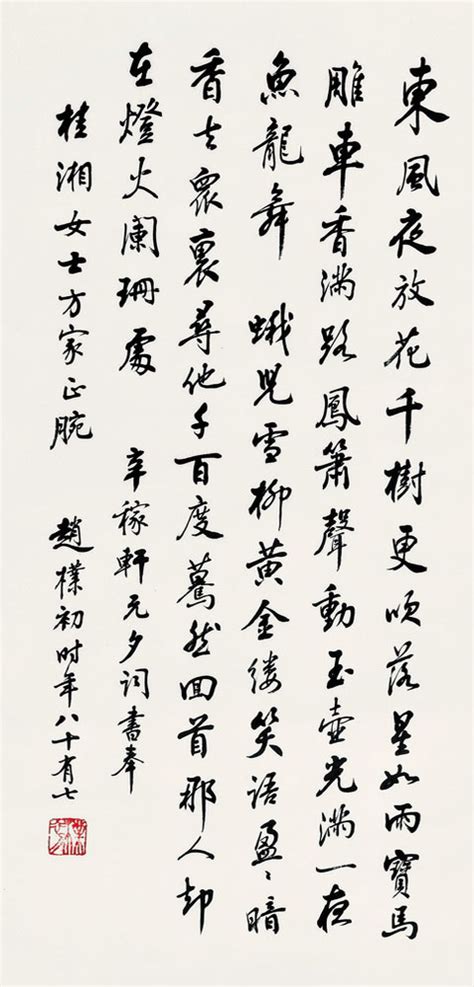 東風夜放花千樹更吹落星如雨寶馬
雕車香滿路鳳簫聲動玉壺光滿一夜
魚龍舞 蛾兒雪柳黃金缕笑語盈〻暗
香去衆裏尋他千百度驀然回首那人却
在燈火闌珊處 辛稼軒元夕詞書奉
桂湘女士方家正腕 趙樸初时年八十有七